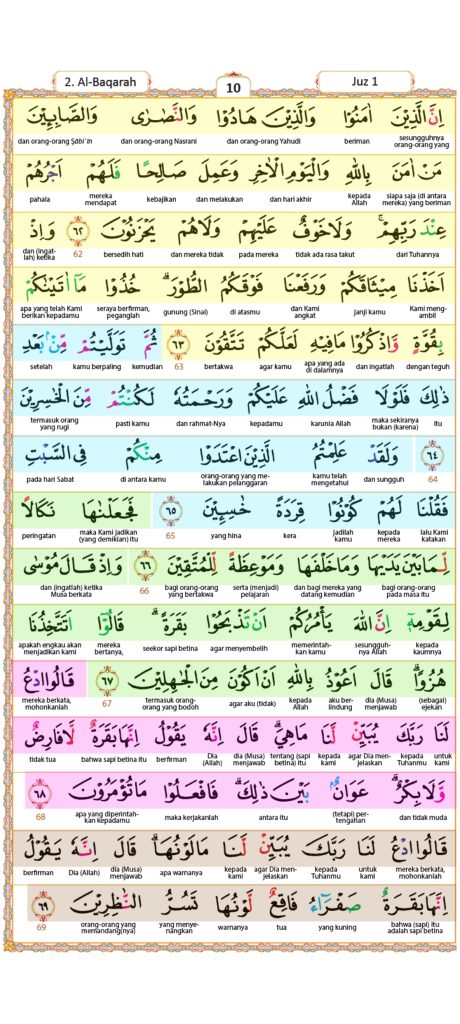 2. Al-Baqarah 10 Juz 1
اِنَّ الَّذِيْنَ اٰمَنُوْا وَالَّذِيْنَ هَادُوْا وَالنَّصٰرٰى وَالصَّابِـِٕيْنَ
sesungguhnya orang-orang yang beriman dan orang-orang Yahudi dan orang-orang Nasrani dan orang-orang Ṣābi`īn
مَنْ اٰمَنَ بِاللّٰهِ وَالْيَوْمِ الْاٰخِرِ وَعَمِلَ صَالِحًا فَلَهُمْ اَجْرُهُمْ
siapa saja (di antara mereka) yang beriman kepada Allah dan hari akhir dan melakukan kebajikan mereka mendapat pahala
عِنْدَ رَبِّهِمْۚ وَلَا خَوْفٌ عَلَيْهِمْ وَلَا هُمْ يَحْزَنُوْنَ ٦٢ وَاِذْ
dari Tuhannya tidak ada rasa takut pada mereka dan mereka tidak bersedih hati 62 dan (ingat-lah) ketika
اَخَذْنَا مِيْثَاقَكُمْ وَرَفَعْنَا فَوْقَكُمُ الطُّوْرَۗ خُذُوْا مَآ اٰتَيْنٰكُمْ
Kami meng-ambil janji kamu dan Kami angkat di atasmu gunung (Sinai) seraya berfirman, peganglah apa yang telah Kami berikan kepadamu
بِقُوَّةٍ وَّاذْكُرُوْا مَا فِيْهِ لَعَلَّكُمْ تَتَّقُوْنَ ٦٣ ثُمَّ تَوَلَّيْتُمْ مِّنْۢ بَعْدِ
dengan teguh dan ingatlah apa yang ada di dalamnya agar kamu bertakwa 63 kemudian kamu berpaling setelah
ذٰلِكَ فَلَوْلَا فَضْلُ اللّٰهِ عَلَيْكُمْ وَرَحْمَتُهٗ لَكُنْتُمْ مِّنَ الْخٰسِرِيْنَ
itu maka sekiranya bukan (karena) karunia Allah kepadamu dan rahmat-Nya pasti kamu termasuk orang yang rugi
٦٤ وَلَقَدْ عَلِمْتُمُ الَّذِيْنَ اعْتَدَوْا مِنْكُمْ فِى السَّبْتِ
64 dan sungguh kamu telah mengetahui orang-orang yang me-lakukan pelanggaran di antara kamu pada hari Sabat
فَقُلْنَا لَهُمْ كُوْنُوْا قِرَدَةً خٰسِـِٕيْنَ ٦٥ فَجَعَلْنٰهَا نَكَالًا
lalu Kami katakan kepada mereka jadilah kamu kera yang hina 65 maka Kami jadikan (yang demikian) itu peringatan
لِّمَا بَيْنَ يَدَيْهَا وَمَا خَلْفَهَا وَمَوْعِظَةً لِّلْمُتَّقِيْنَ ٦٦ وَاِذْ قَالَ مُوْسٰى
bagi orang-orang pada masa itu dan bagi mereka yang datang kemudian serta (menjadi) pelajaran bagi orang-orang yang bertakwa 66 dan (ingatlah) ketika Musa berkata
لِقَوْمِهٖٓ اِنَّ اللّٰهَ يَأْمُرُكُمْ اَنْ تَذْبَحُوْا بَقَرَةًۗ قَالُوْٓا اَتَتَّخِذُنَا
kepada kaumnya sesungguh-nya Allah memerintah-kan kamu agar menyembelih seekor sapi betina mereka bertanya, apakah engkau akan menjadikan kami
هُزُوًاۗ قَالَ اَعُوْذُ بِاللّٰهِ اَنْ اَكُوْنَ مِنَ الْجٰهِلِيْنَ ٦٧ قَالُوا ادْعُ
(sebagai) ejekan dia (Musa) menjawab aku ber-lindung kepada Allah agar aku (tidak) termasuk orang-orang yang bodoh 67 mereka berkata, mohonkanlah
لَنَا رَبَّكَ يُبَيِّنْ لَّنَا مَا هِيَۗ قَالَ اِنَّهٗ يَقُوْلُ اِنَّهَا بَقَرَةٌ لَّا فَارِضٌ
untuk kami kepada Tuhanmu agar Dia men-jelaskan kepada kami tentang (sapi betina) itu dia (Musa) menjawab Dia (Allah) berfirman bahwa sapi betina itu tidak tua
وَّلَا بِكْرٌۗ عَوَانٌۢ بَيْنَ ذٰلِكَۗ فَافْعَلُوْا مَا تُؤْمَرُوْنَ ٦٨
dan tidak muda (tetapi) per-tengahan antara itu maka kerjakanlah apa yang diperintah-kan kepadamu 68
قَالُوا ادْعُ لَنَا رَبَّكَ يُبَيِّنْ لَّنَا مَا لَوْنُهَاۗ قَالَ اِنَّهٗ يَقُوْلُ
mereka berkata, mohonkanlah untuk kami kepada Tuhanmu agar Dia men-jelaskan kepada kami apa warnanya dia (Musa) menjawab Dia (Allah) berfirman
اِنَّهَا بَقَرَةٌ صَفْرَاۤءُ فَاقِعٌ لَّوْنُهَا تَسُرُّ النّٰظِرِيْنَ ٦٩
bahwa (sapi) itu adalah sapi betina yang kuning tua warnanya yang menye-nangkan orang-orang yang memandang(nya) 69